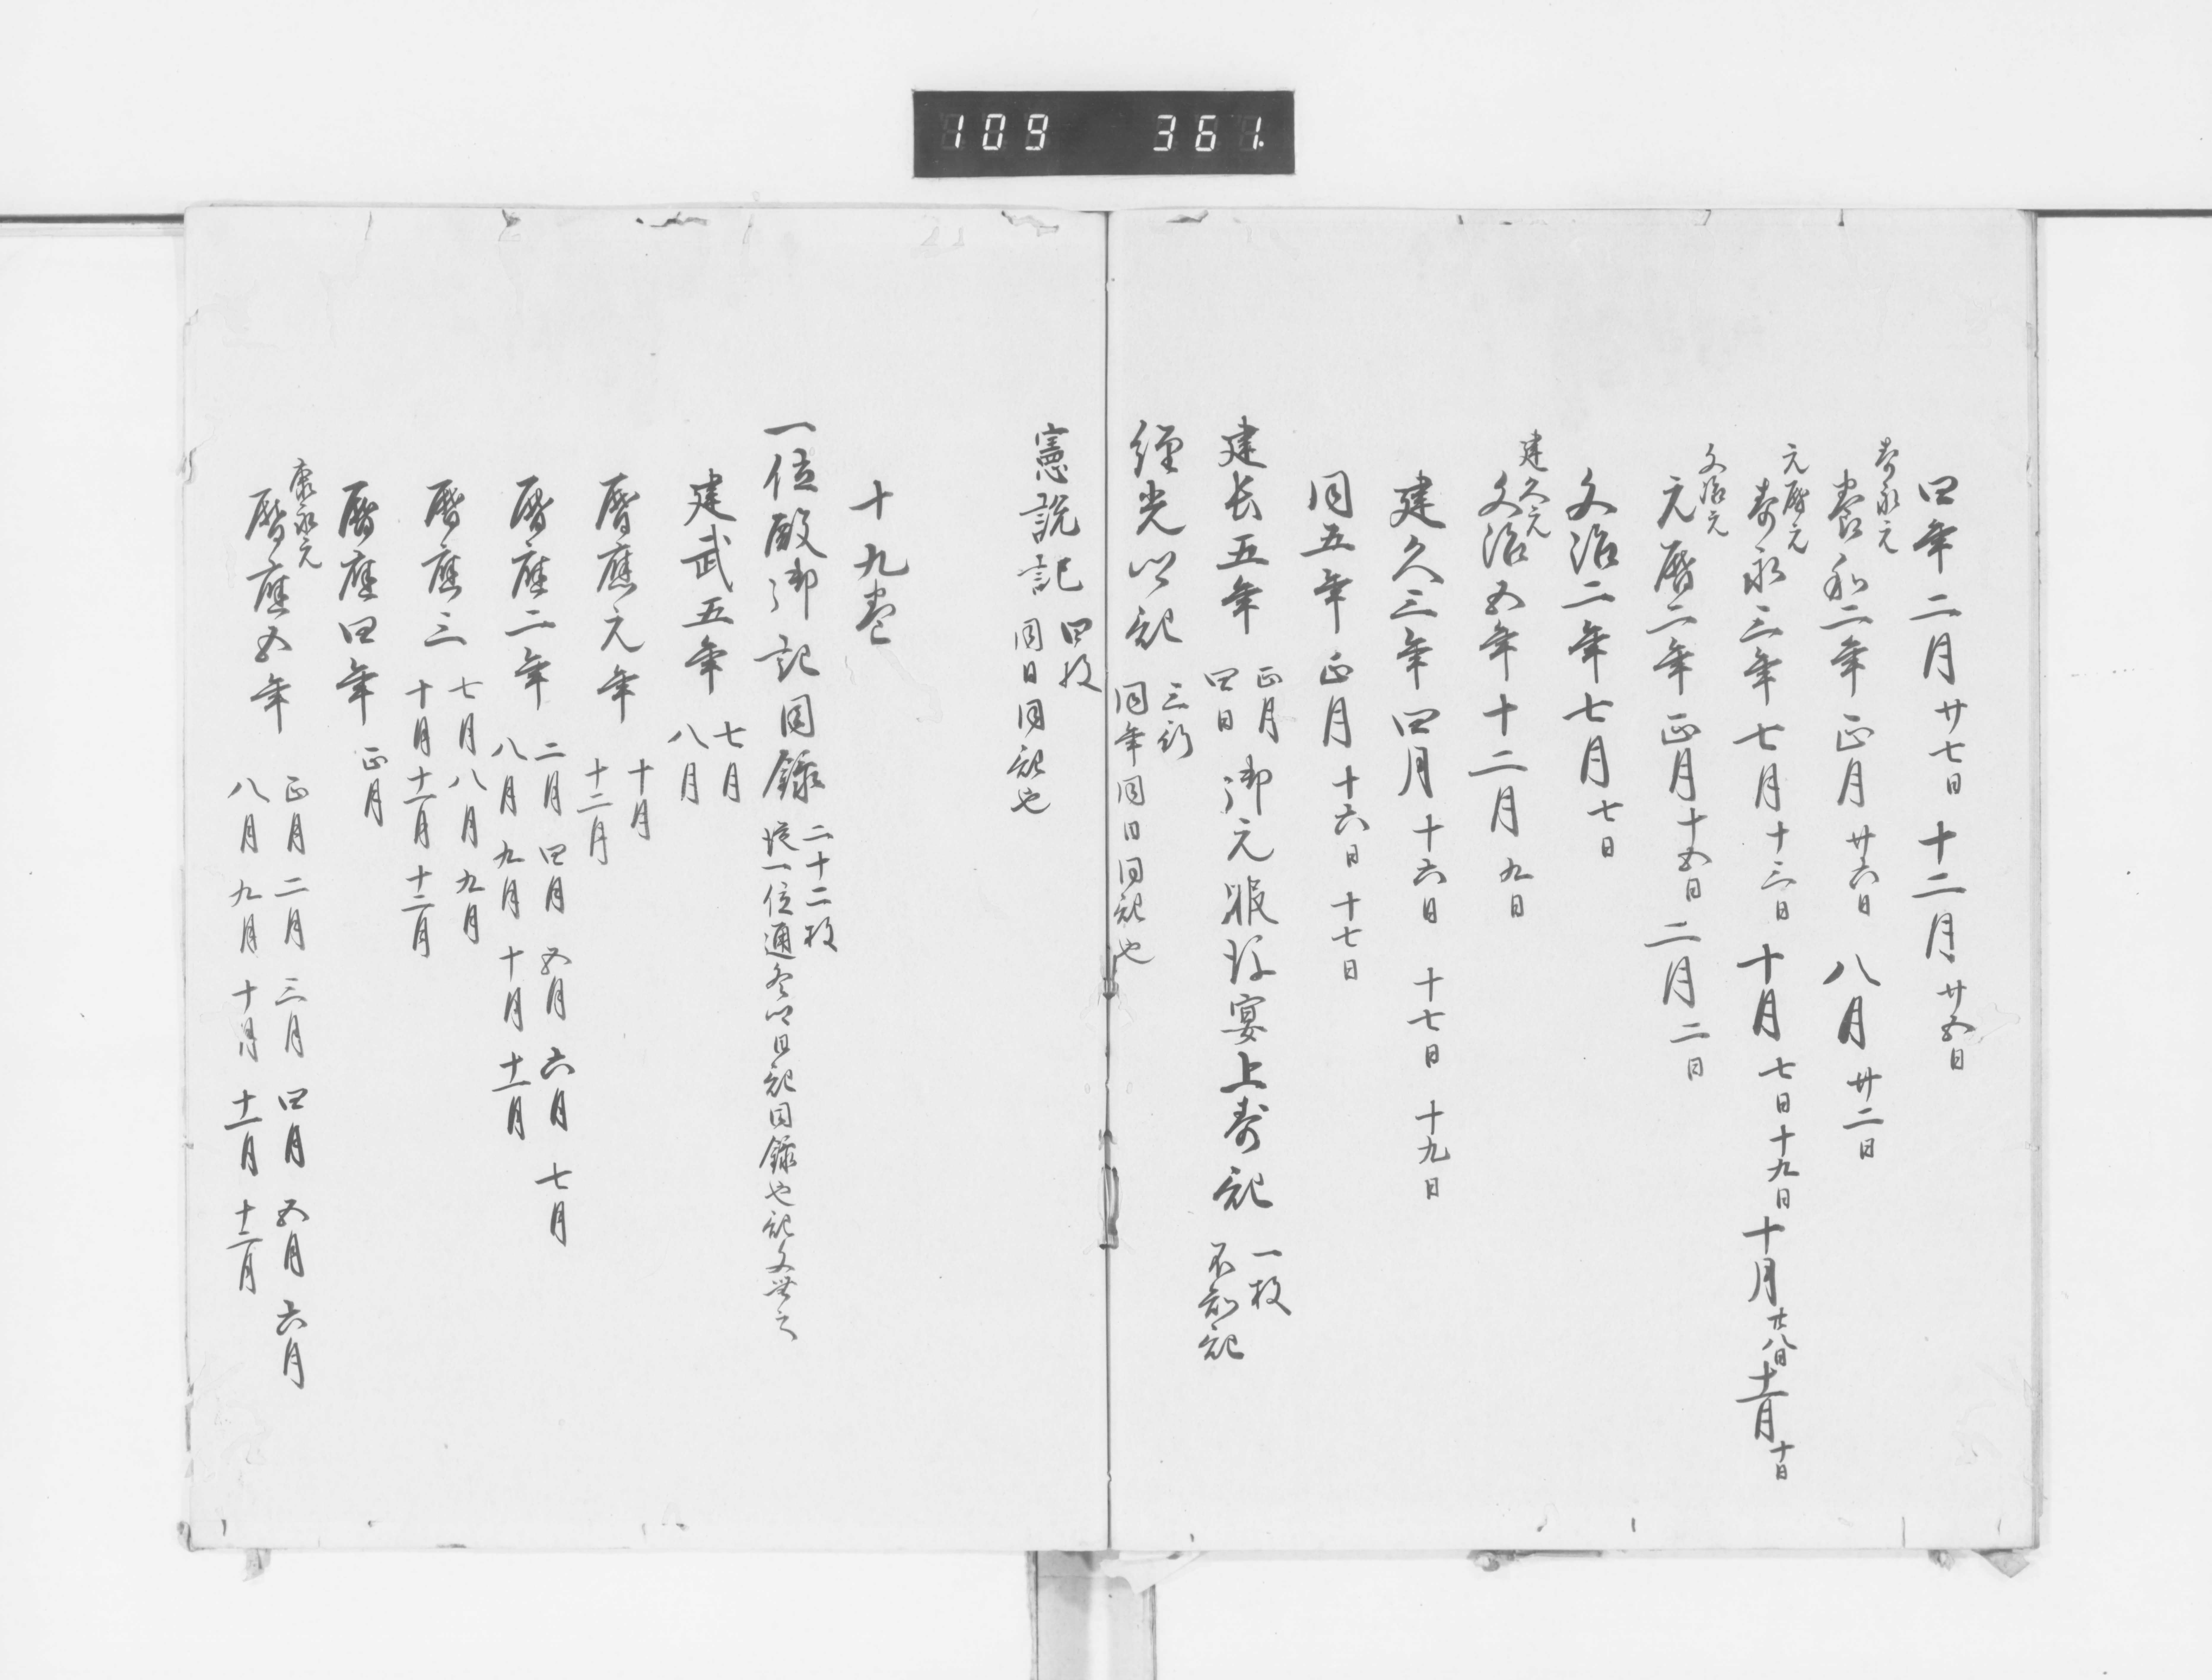 109 361.
四年二月廿七日十二月廿五日
寿永元
養和二年正月廿六日八月廿二日
元暦元
寿永三年七月十三日十月七日十九日十月廿八日十一月十日
文治元
元暦二年正月十五日二月二日
文治二年七月七日
建久元
文治五年十二月九日
建久三年四月十六日十七日十九日
同五年正月十六日十七日
建长五年
正月
四日
御元服後宴上寿記
一枚
不知記
経光公記
三行
同年同日同記也
憲説記
四枚
同日同記也
十九巻
一位殿御記目録
二十二枚
後一位通冬公日記目録也記文無之
建武五年
七月
八月
暦應元年
十月
十二月
暦應二年
二月四月五月六月七月
八月九月十月十一月
暦應三
七月八月九月
十月十一月十二月
暦應四年
正月
康永元
暦應五年
正月二月三月四月五月六月
八月九月十月十一月十二月